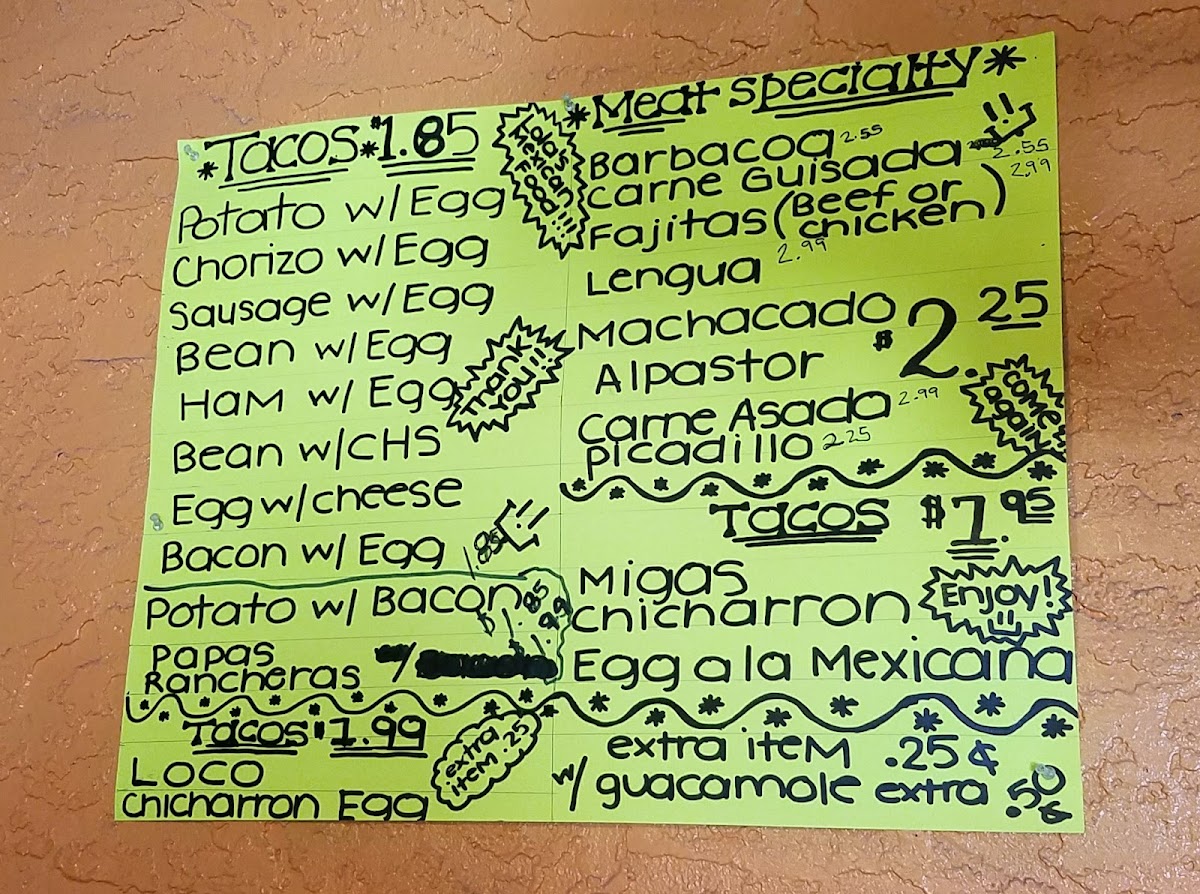 *Tacos*$1.85
Potato w/Egg
Chorizo w/Egg
Sausage w/Egg
Bean w/Egg
Ham w/ Egg
Bean w/CHS
Egg w/cheese
Bacon w/ Egg 1.85
Potato w/ Bacon
Papas
Rancheras
Tacos $1.99
Loco
Chicharron Egg
extra
item .25
Mexican
Food!!!
Thank
You!!
*Meat specialty*
Barbacoa 2.55
Carne Guisada 2.55
Fajitas (Beef or chicken) 2.99
2.99
Lengua
Machacado
$2.25
Alpastor
Carne Asada 2.99
Picadillo 2.25
come
again
Tacos $1.95
Migas
chicharron
Enjoy!
Egg a la Mexicana
extra item .25¢
w/ guacamole extra .50¢